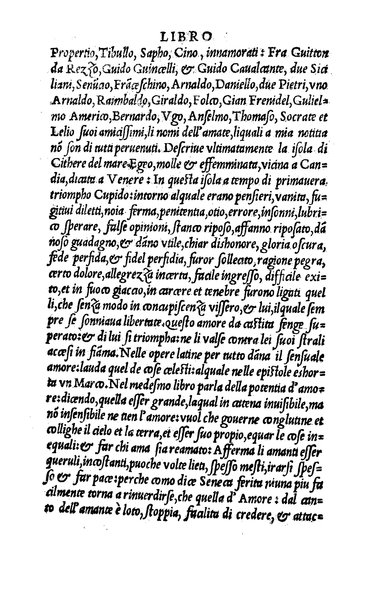 LIBRO
Propertio, Tibullo, Sapho, Cino, innamorati: Fra Guitton
da Rezzo, Guido Guincelli, & Guido Caualcante, due Sici
liani, Senuão, Frãceschino, Arnaldo, Daniello, due Pietri, vno
Arnaldo, Raimbaldo, Giraldo, Folco, Gian Frenidel, Guliel⸗
mo Americo, Bernardo, Vgo, Anselmo, Thomaso, Socrate et
Lelio suoi amicissimi, li nomi dell'amate, liquali a mia notitia
nõ son di tutti peruenuti. Descriue vltimatamente la isola di
Cithere del mare Egeo, molle & effemminata, vicina a Can⸗
dia, dicata a Venere: In questa isola a tempo di primauera,
triompho Cupido: intorno alquale erano pensieri, vanita, fu⸗
gitiui diletti, noia ferma, penitentia, otio, errore, insonni, lubri⸗
co sperare, false opinioni, stanco riposo, affanno riposato, dã
noso guadagno, & dãno vtile, chiar dishonore, gloria oscura,
fede perfida, & fidel perfidia, furor sollecito, ragione pegra,
certo dolore, allegrezza incerta, facile ingresso, difficile exi⸗
to, et in fuoco giaccio, in carcere et tenebre furono ligati quel
li, che senza modo in concupiscenza vissero, & lui, ilquale sem
pre se sonniaua libertate. questo amore da castita fenge su⸗
perato: & di lui si triompha: ne li valse contra lei suoi strali
accesi in fiãma. Nelle opere latine per tutto dãna il sensuale
amore: lauda quel de costumi: alquale nelle epistole eshor⸗
ta vn Marco. Nel medesmo libro parla della potentia d'amo⸗
re: dicendo, quella esser grande, laqual in catena inuisibile, ma
nõ insensibile ne tien l'amore: vuol che gouerne conglutine et
collighe il cielo et la terra, et esser suo propio, equar le cose in⸗
equali: & far chi ama sia reamato: Afferma li amanti esser
queruli, incostanti, puoche volte lieti, spesso mesti, irarsi spes⸗
so & far pace: perche como dice Seneca ferita niuna piu fa
cilmente torna a rinuerdirse, che quella d'Amore: dal can⸗
to dell'amante è loto, stoppia, facilita di credere, & attac⸗